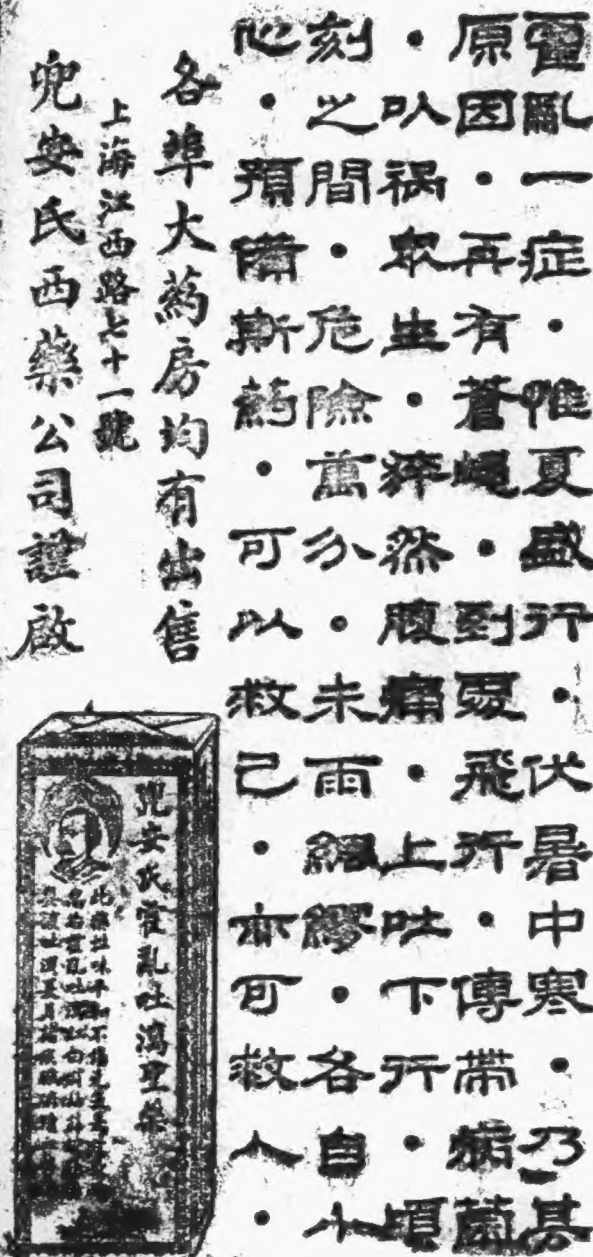 霍亂一症・惟夏盛行・伏暑中寒・乃其
原因・再有蒼蠅・到處飛行・傳帶病菌
・以禍眾生・猝然腹痛・上吐下行・頃
刻之間・危險萬分・未雨綢繆・各自小
心・預備斯葯・可以救己・亦可救人・
各埠大葯房均有出售
上海江西路七十一號
兜安氏西藥公司謹啟
兜安氏霍亂吐瀉聖藥